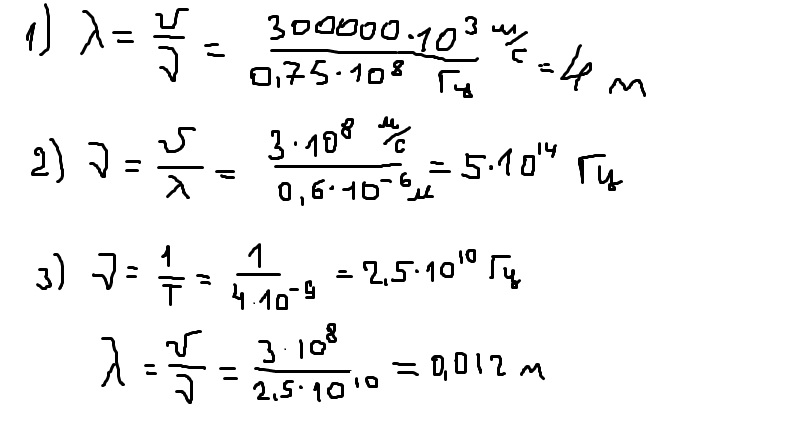 1) λ = υ/ν = 300000·10³ м/с / 0,75·10⁸ Гц = 4 м
2) ν = υ/λ = 3·10⁸ м/с / 0,6·10⁻⁶ м = 5·10¹⁴ Гц
3) ν = 1/T = 1/4·10⁻⁹ = 2,5·10¹⁰ Гц
λ = υ/ν = 3·10⁸ / 2,5·10¹⁰ = 0,012 м